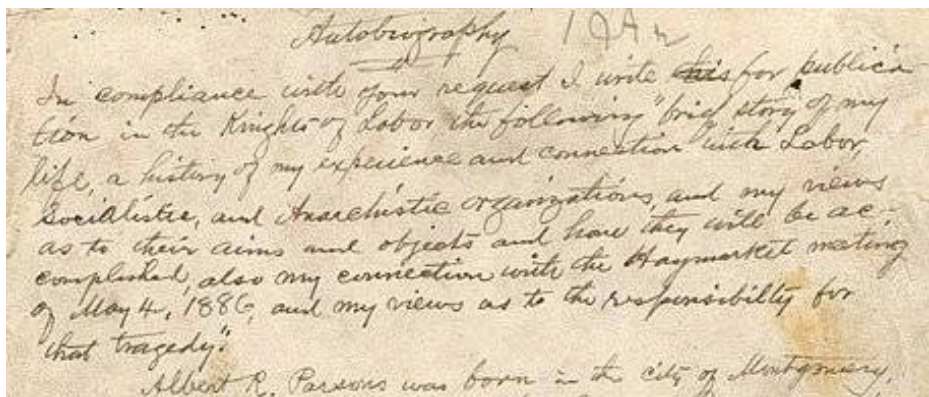 Autobiography
In compliance with your request I write for publica-
tion in the Knights of Labor the following "brief story of my
life, a history of my experience and connection with Labor,
Socialistic, and Anarchistic organizations, and my views
as to their aims and objects and how they will be ac-
complished, also my connection with the Haymarket meeting
of May 4, 1886, and my views as to the responsibilty for
that tragedy".
Albert R. Parsons was born in the city of Montgomery,